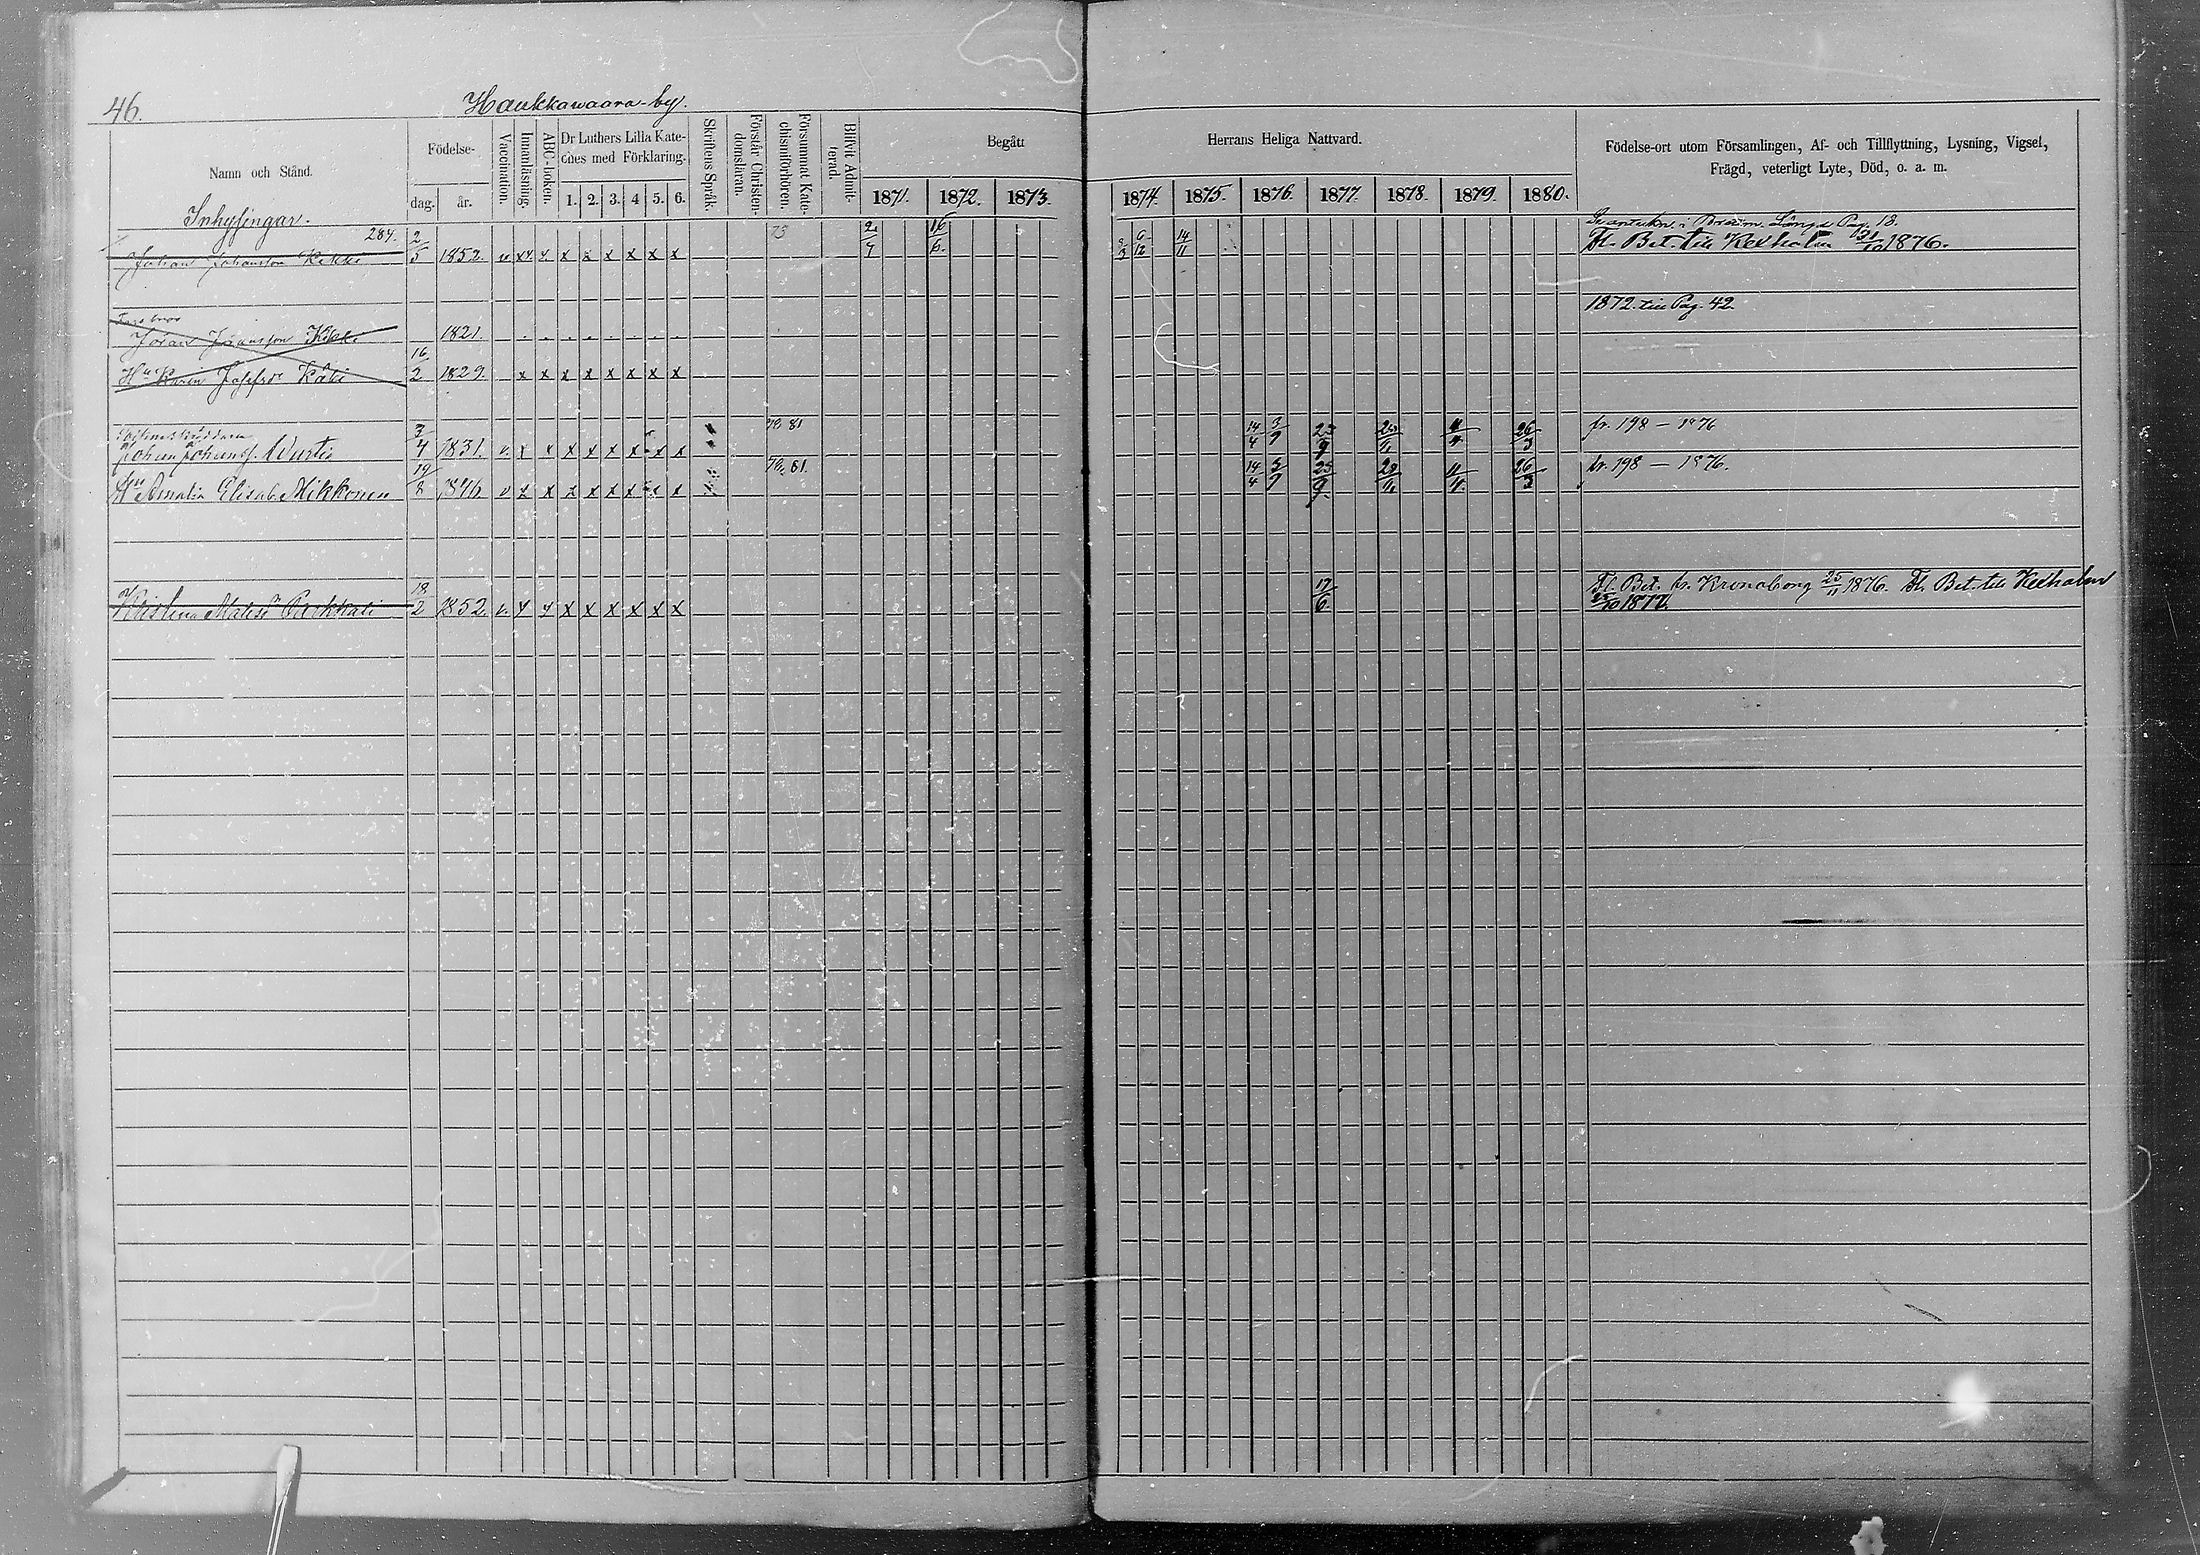 46.
Haukkawaara-by.
Namn och Stånd.
Födelse-
dag. år.
Vaccination.
Innanläsning.
ABC-boken.
Dr Luthers Lilla Kate-
ches med Förklaring.
1. 2. 3. 4 5. 6.
Skriftens Språk.
Förstår Christen-
domsläran.
Försummat Kate-
chismiförhören.
Blifvit Admit-
terad.
Begått
Herrans Heliga Nattvard.
1871. 1872. 1873. 1874. 1875. 1876. 1877. 1878. 1879. 1880.
Födelse-ort utom Församlingen, Af- och Tillflyttning, Lysning, Vigsel,
Frägd, veterligt Lyte, Död, o. a. m.
Inhysingar.
Pag. 18.
284. 73
Johan Johansson Kekki 2/5 1852. v. x x x x x x x x 2/7 16/6. 2/3 6/12 14/11 Fl. Bet. till Kexholm 21/10 1876.
1872. till Pag. 42
Johan Johansson Kekki 1821.
Hu Karin Josefsdr 16/2 1829. x x x x x x x x
Johan Johanss. Wurtio 3/4 1831. v. x x x x x x x x 81 14/4 3/9 23/9 11/11 26/3 fr. 198 — 1876
Hu Amalia Elisab. Mikkonen 19/8 1846 v x x x x x x x x 81. 14/4 3/9 23/9 11/11. 26/3 fr. 198 — 1876.
Kristina Matisdr 18/2 1852. v. x x x x x x x x 17/6. Fl. Bet. fr. Kronoborg 25/11 1876. Fl. Bet. till Kexholm
25/10 1877.